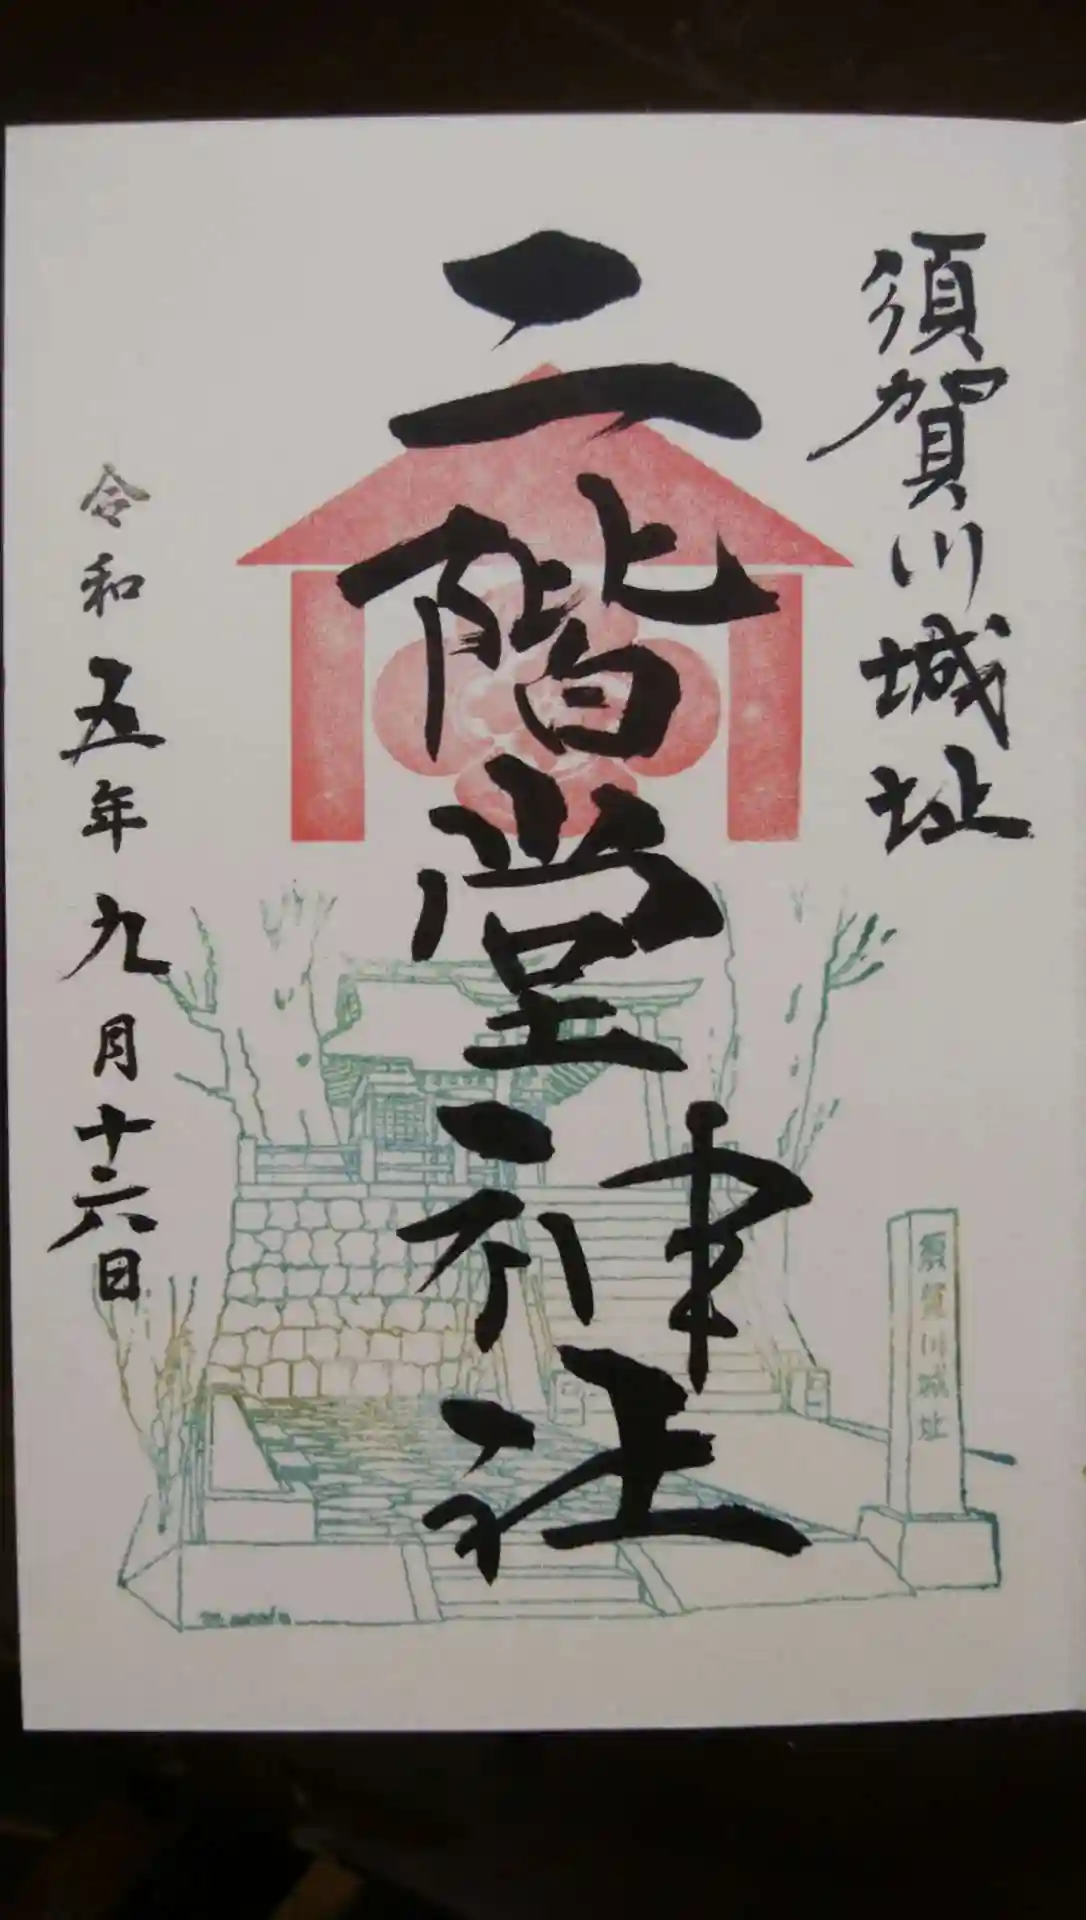 須賀川城址
二階堂神社
令和五年九月十六日
須賀川城址